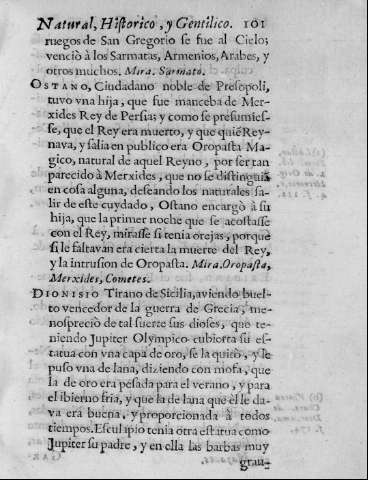 Natural, Historico, y Gentilico. 101
ruegos de San Gregorio se fue al Cielo;
venciò à los Sarmatas, Armenios, Arabes, y
otros muchos. Mira. Sarmato.
OSTANO, Ciudadano noble de Presopoli,
tuvo vna hija, que fue manceba de Mer-
xides Rey de Persia; y como se presumies-
se, que el Rey era muerto, y que quiē Rey-
nava, y salia en publico era Oropasta Ma-
gico, natural de aquel Reyno, por ser tan
parecido à Merxides, que no se distinguia
en cosa alguna, deseando los naturales sa-
lir de este cuydado, Ostano encargò à su
hija, que la primer noche que se acostasse
con el Rey, mirasse si tenia orejas, porque
si le faltavan era cierta la muerte del Rey,
y la intrusion de Oropasta. Mira. Oropasta,
Merxides, Cometes.
DIONISIO Tirano de Sicilia, aviendo buel-
to vencedor de la guerra de Grecia, me-
nospreciò de tal suerte sus dioses, que te-
niendo Jupiter Olympico cubierta su es-
tatua con vna capa de oro, se la quitò, y le
puso vna de lana, diziendo con mofa, que
la de oro era pesada para el verano, y para
el ibierno fria, y que la de lana que èl le da-
va era buena, y proporcionada à todos
tiempos. Esculapio tenia otra estatua como
Jupiter su padre, y en ella las barbas muy
gran-